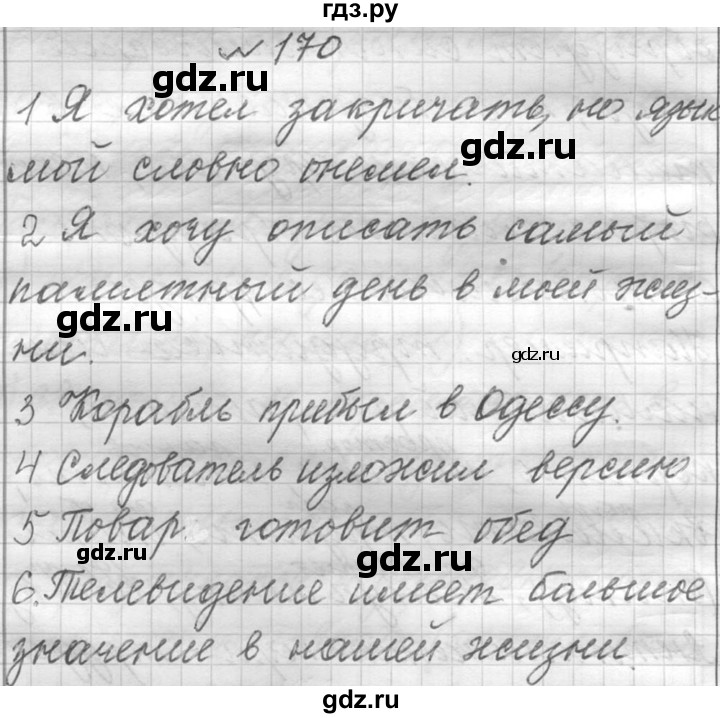 гдз.ру
№ 170
gdz.ru
1 Я хотел закричать, но язык
gdz.ru
мой словно онемел.
2 Я хочу описать самый
памятный день в моей жиз-
gdz.ru
ни.
gdz.ru
3 Корабль прибыл в Одессу.
4 Следователь изложил версию
5 Повар готовит обед
gdz.ru
gdz.ru
6. Телевидение имеет большое
значение в нашей жизни
gdz.ru